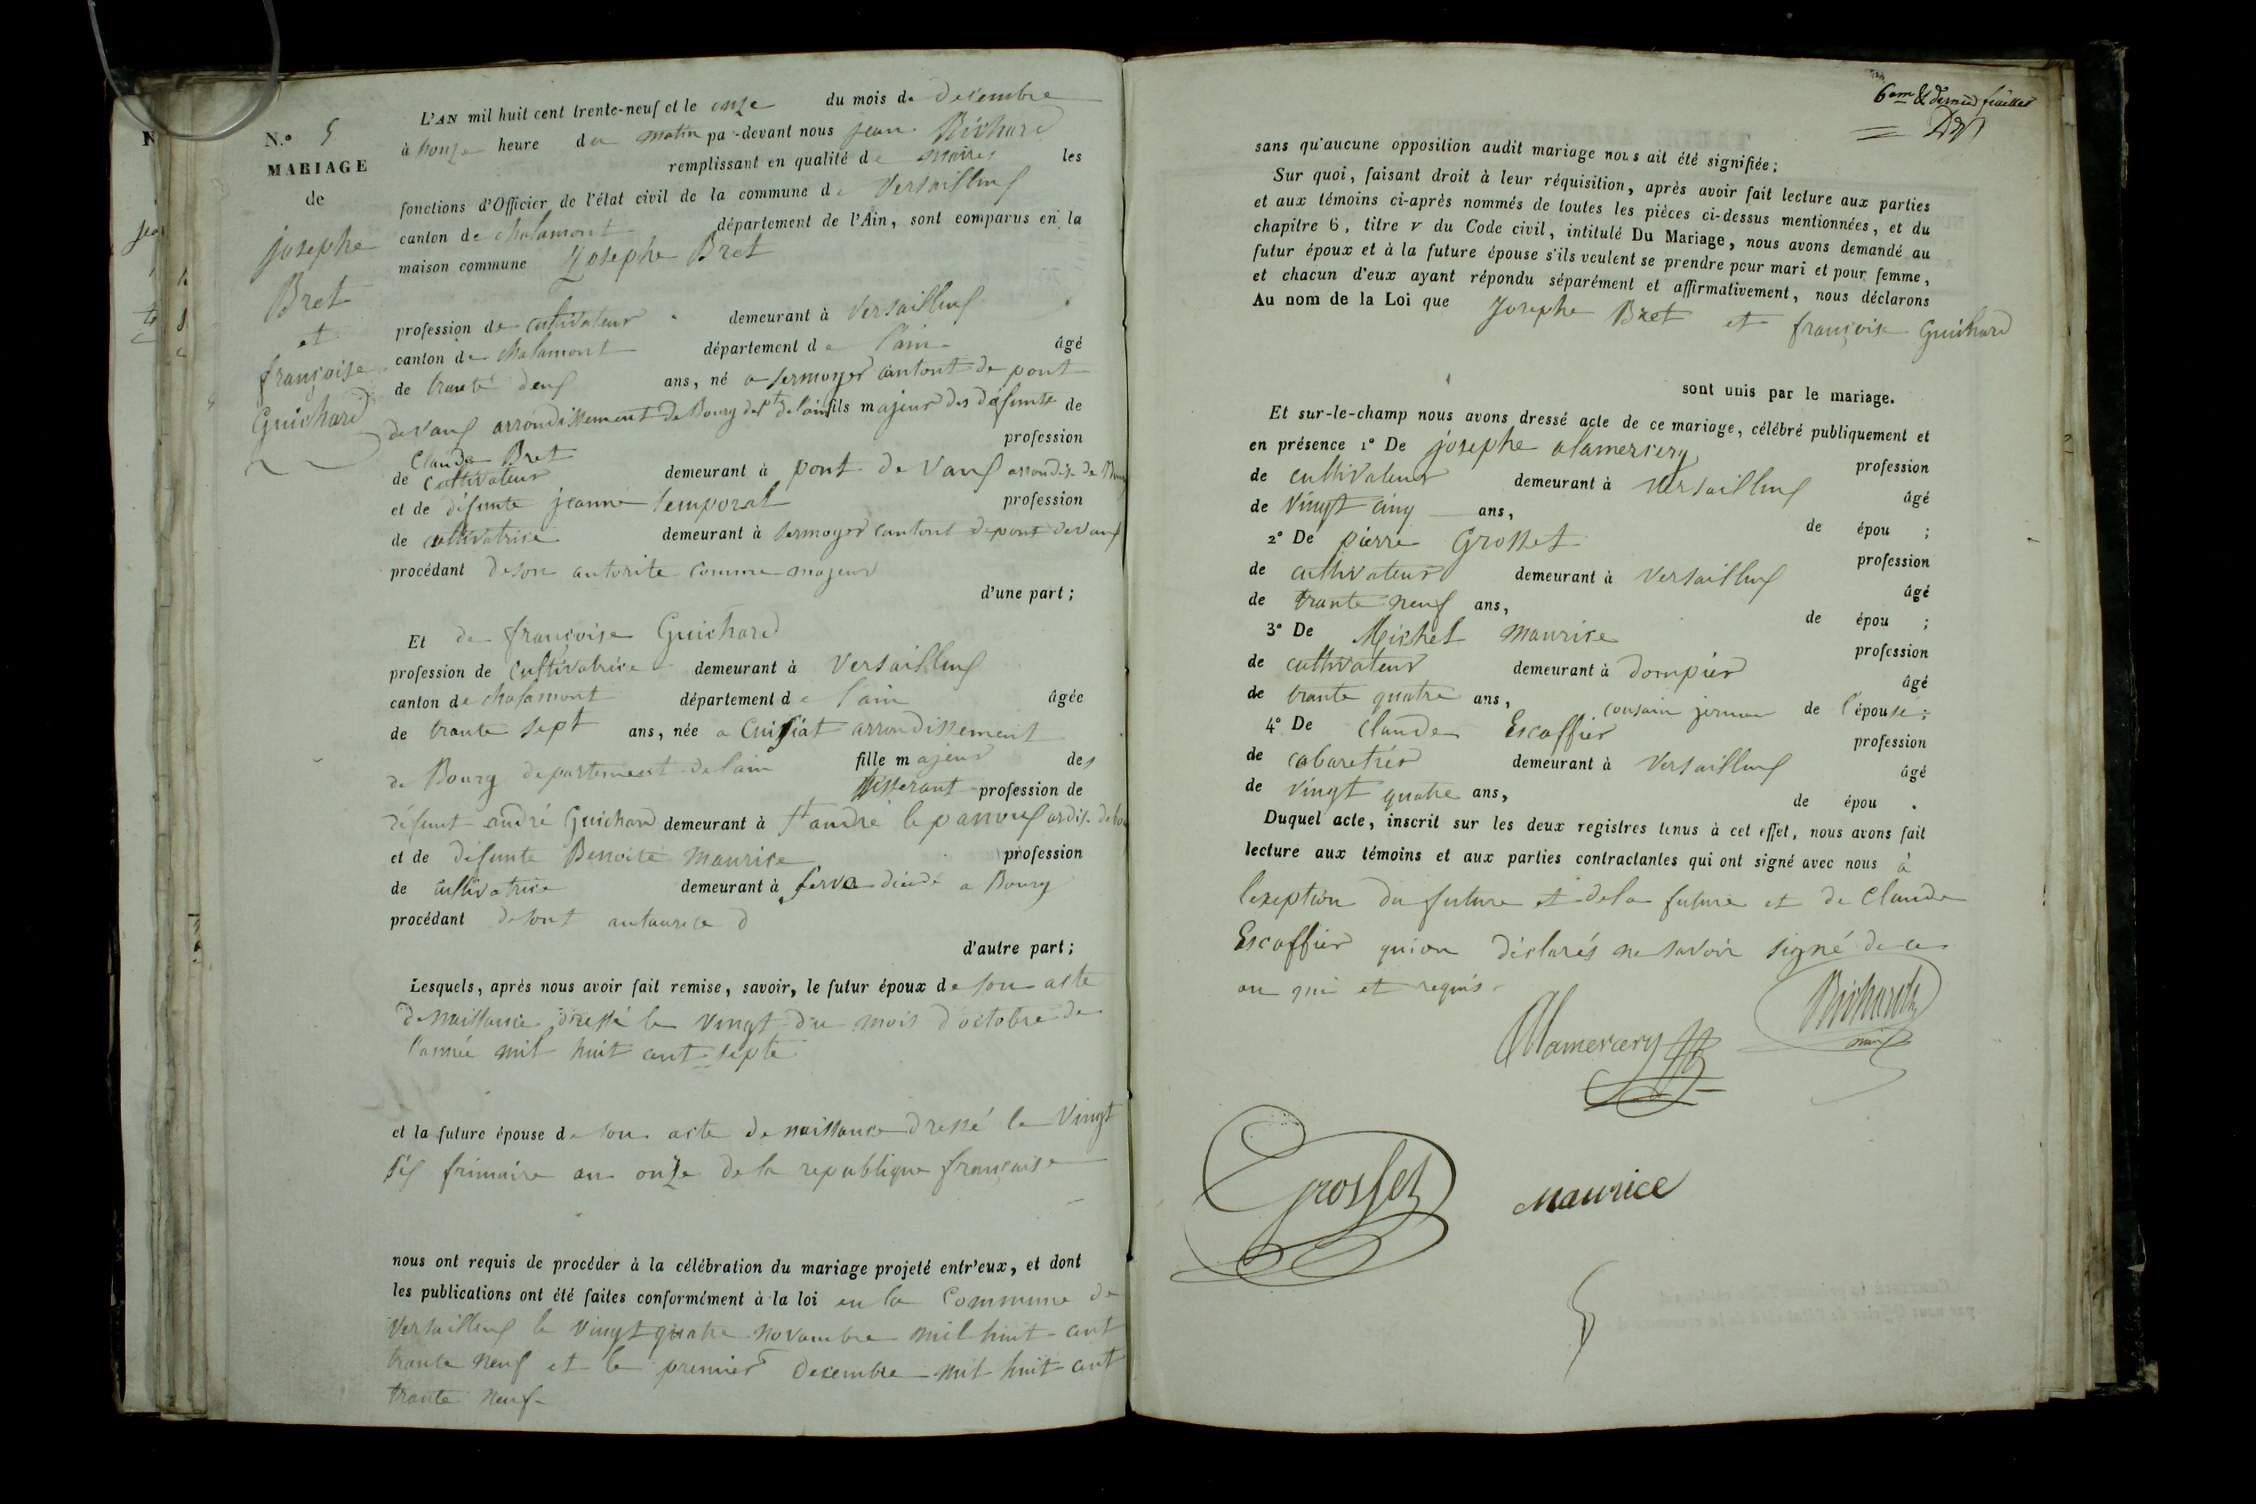 N.° 5
MARIAGE
de
josephe
Bret
et
françoise
Guichard
L'AN mil huit cent trente-neuf et le onze du mois de decembre
à honze heure du matin par-devant nous jean Bichard
remplissant en qualité de maire les
fonctions d'Officier de l'état civil de la commune de Versailleux
canton de chalamont département de l'Ain, sont comparus en la
maison commune Josephe Bret
profession de cultivateur demeurant à Versailleux
canton de chalamont département de l'ain âgé
de trante deux ans, né a sermoyer cantont de pont
devaux arrondissement de Bourg dept de lain fils majeur des défunts de
Claude Bret profession
de cultivateur demeurant à pont de vaux arrondis. de Bourg
et de défunte jeanne temporal profession
de cultivatrice demeurant à sermoyer cantont depont devaux
procédant deson autorite comme majeur
d'une part;
Et de françoise Guichard
profession de cultivatrice demeurant à Versailleux
canton de chalamont département de l'ain âgée
de trante sept ans, née a Cuisiat arrondissement
de Bourg departement delain fille majeur des
tisserant profession de
défunt andré Guichard demeurant à St andré le panoux ardis. de bou
et de défunte Benoite maurice profession
de cultivatrice demeurant à servas décédé a Bourg
procédant desont
d'autre part;
Lesquels, après nous avoir fait remise, savoir, le futur époux de son acte
de naissance dressé le vingt du mois d'octobre de
l'année mil huit cent septe
et la future épouse de son acte de naissance dressé le vingt
six frimaire an onze de la republique française
nous ont requis de procéder à la célébration du mariage projeté entr'eux, et dont
les publications ont été faites conformément à la loi en la Commune de
Versailleux le vingt quatre novambre mil huit cent
trante neuf et le premier decembre mil huit cent
trante neuf
6em & dernier feuillet
sans qu'aucune opposition audit mariage nous ait été signifiée;
Sur quoi, faisant droit à leur réquisition, après avoir fait lecture aux parties
et aux témoins ci-après nommés de toutes les pièces ci-dessus mentionnées, et du
chapitre 6, titre v du Code civil, intitulé Du Mariage, nous avons demandé au
futur époux et à la future épouse s'ils veulent se prendre pour mari et pour femme,
et chacun d'eux ayant répondu séparément et affirmativement, nous déclarons
Au nom de la Loi que Josephe Bret et françoise Guichard
sont unis par le mariage.
Et sur-le-champ nous avons dressé acte de ce mariage, célébré publiquement et
en présence 1° De josephe alamercery profession
de cultivateur demeurant à Versailleux âgé
de vingt cinq ans, de épou ;
2° De pierre Grosset profession
de cultivateur demeurant à Versailleux âgé
de trante neuf ans, de épou ;
3° De Michel maurice profession
de cultivateur demeurant à dompier âgé
de trante quatre ans, cousain jermain de l'épouse;
4° De Claude Escoffier profession
de cabaretier demeurant à Versailleux âgé
de vingt quatre ans, de épou .
Duquel acte, inscrit sur les deux registres tenus à cet effet, nous avons fait
lecture aux témoins et aux parties contractantes qui ont signé avec nous à
lexeption du future et dela future et de Claude
Escoffier quion déclarés ne savoir signé de ce
on qui et requis.
Bichard
maire
Alamercery
Grosset
Maurice